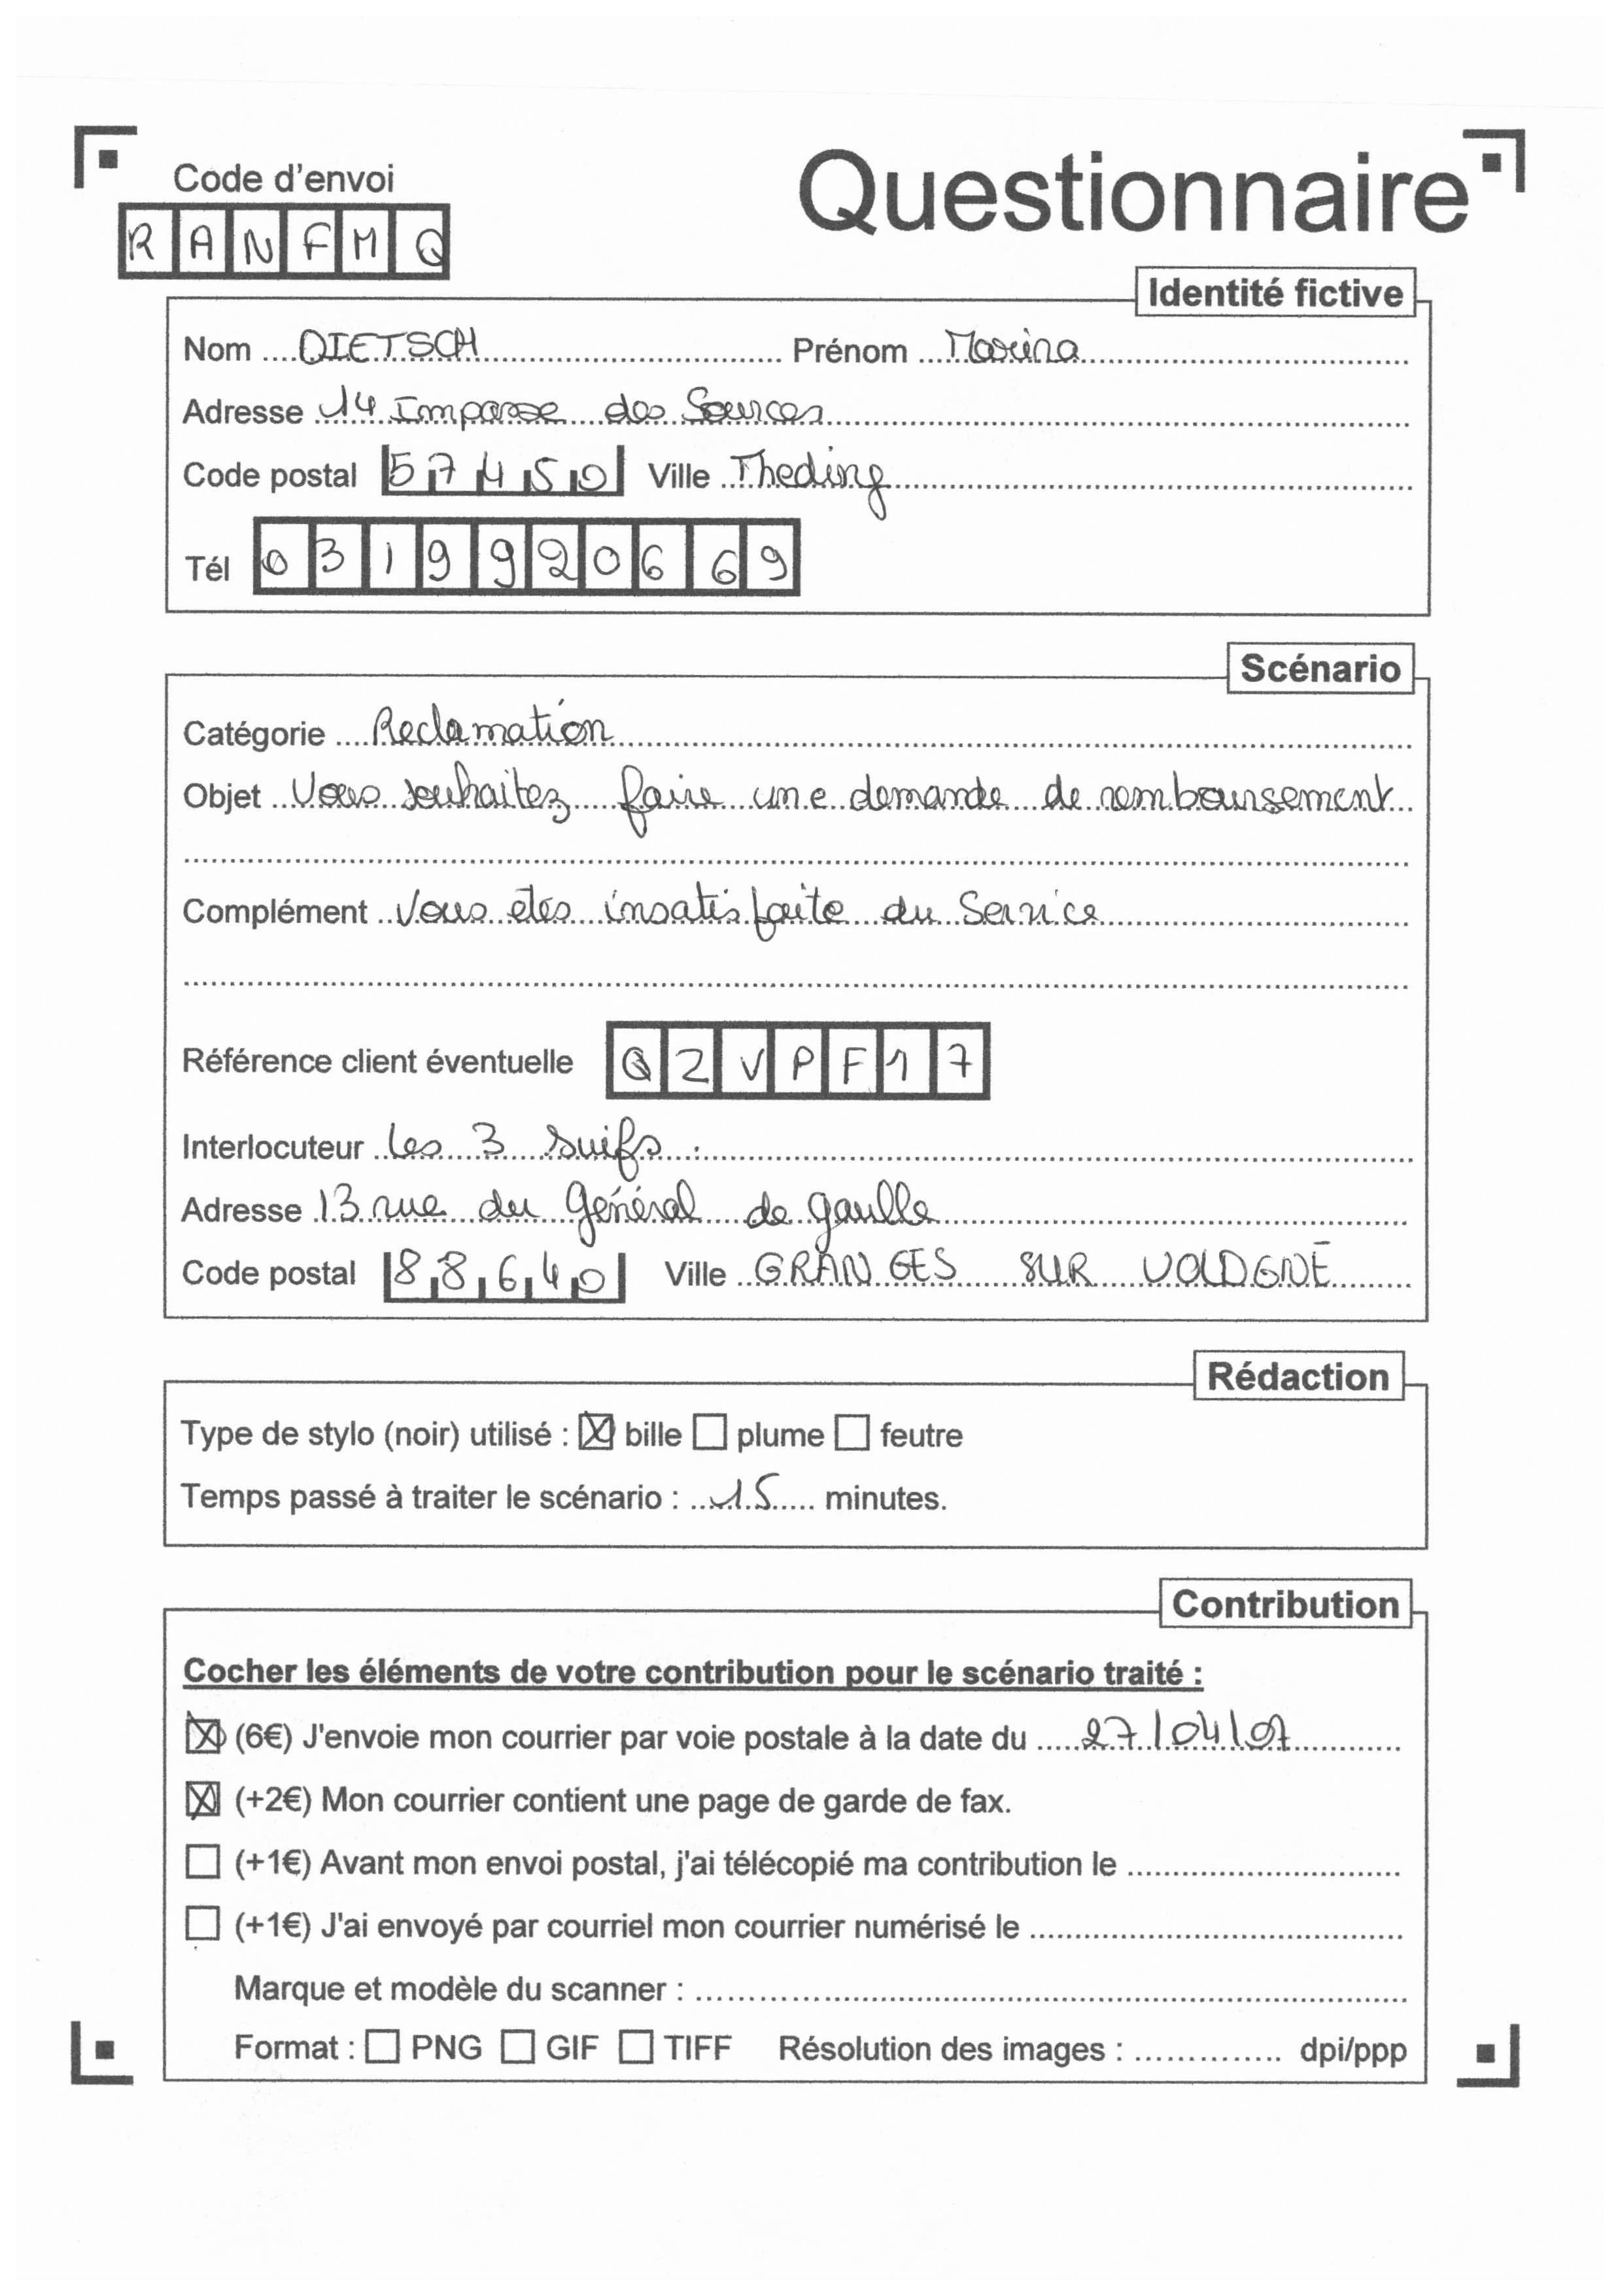 Code d'envoi
Questionnaire
RANFMQ
Identité fictive
Nom DIETSCH Prénom Marina
Adresse 14 Impasse des Sources
Code postal 57450 Ville Theding
Tél 0319920669
Scénario
Catégorie Reclamation
Objet Vous souhaitez faire une demande de remboursement
Complément Vous etes insatisfaite du Service
Référence client éventuelle QZVPF17
Interlocuteur les 3 suifs.
Adresse 13 rue du général de gaulle
Code postal 88640 Ville GRANGES SUR VOLOGNE
Rédaction
Type de stylo (noir) utilisé : ☒ bille ☐ plume ☐ feutre
Temps passé à traiter le scénario : 15 minutes.
Contribution
Cocher les éléments de votre contribution pour le scénario traité :
☒ (6€) J'envoie mon courrier par voie postale à la date du 27/04/07
☒ (+2€) Mon courrier contient une page de garde de fax.
☐ (+1€) Avant mon envoi postal, j'ai télécopié ma contribution le
☐ (+1€) J'ai envoyé par courriel mon courrier numérisé le
Marque et modèle du scanner :
Format : ☐ PNG ☐ GIF ☐ TIFF Résolution des images : dpi/ppp